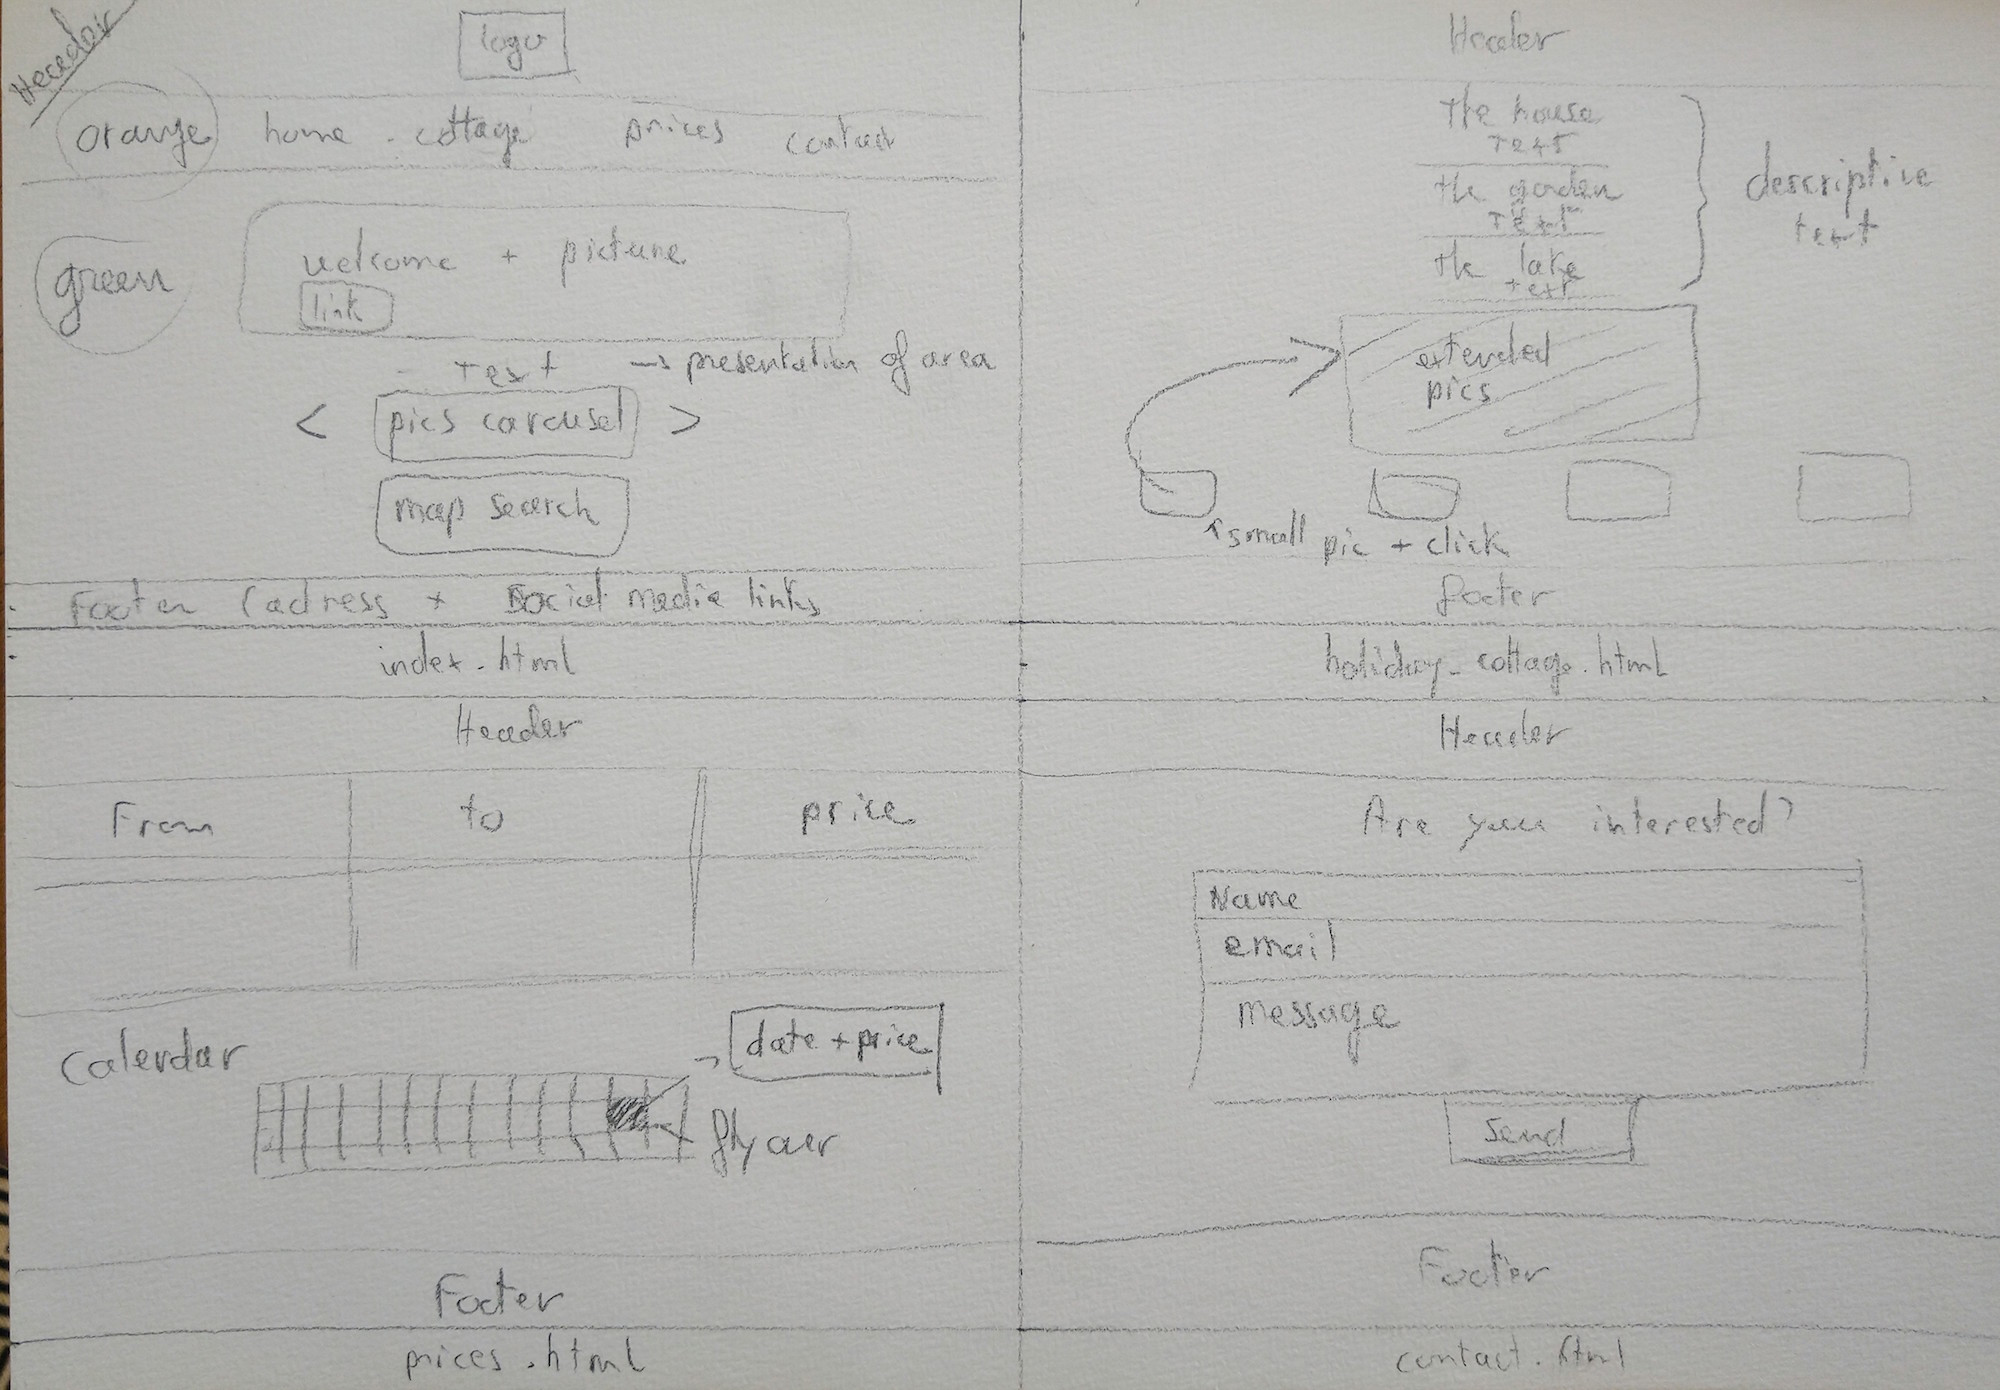 Header
logo
orange home cottage prices contact
green
welcome + picture
link
Text → presentation of area
< pics carousel >
map search
Footer (adress + Social media links
index.html
Header
the house
Text
the garden
Text
the lake
text
descriptive
text
extended
pics
↑ small pic + click
footer
holiday_cottage.html
Header
From to price
Calendar
→ date + price
Footer
prices.html
Header
Are you interested?
Name
email
message
Send
Footer
contact.html